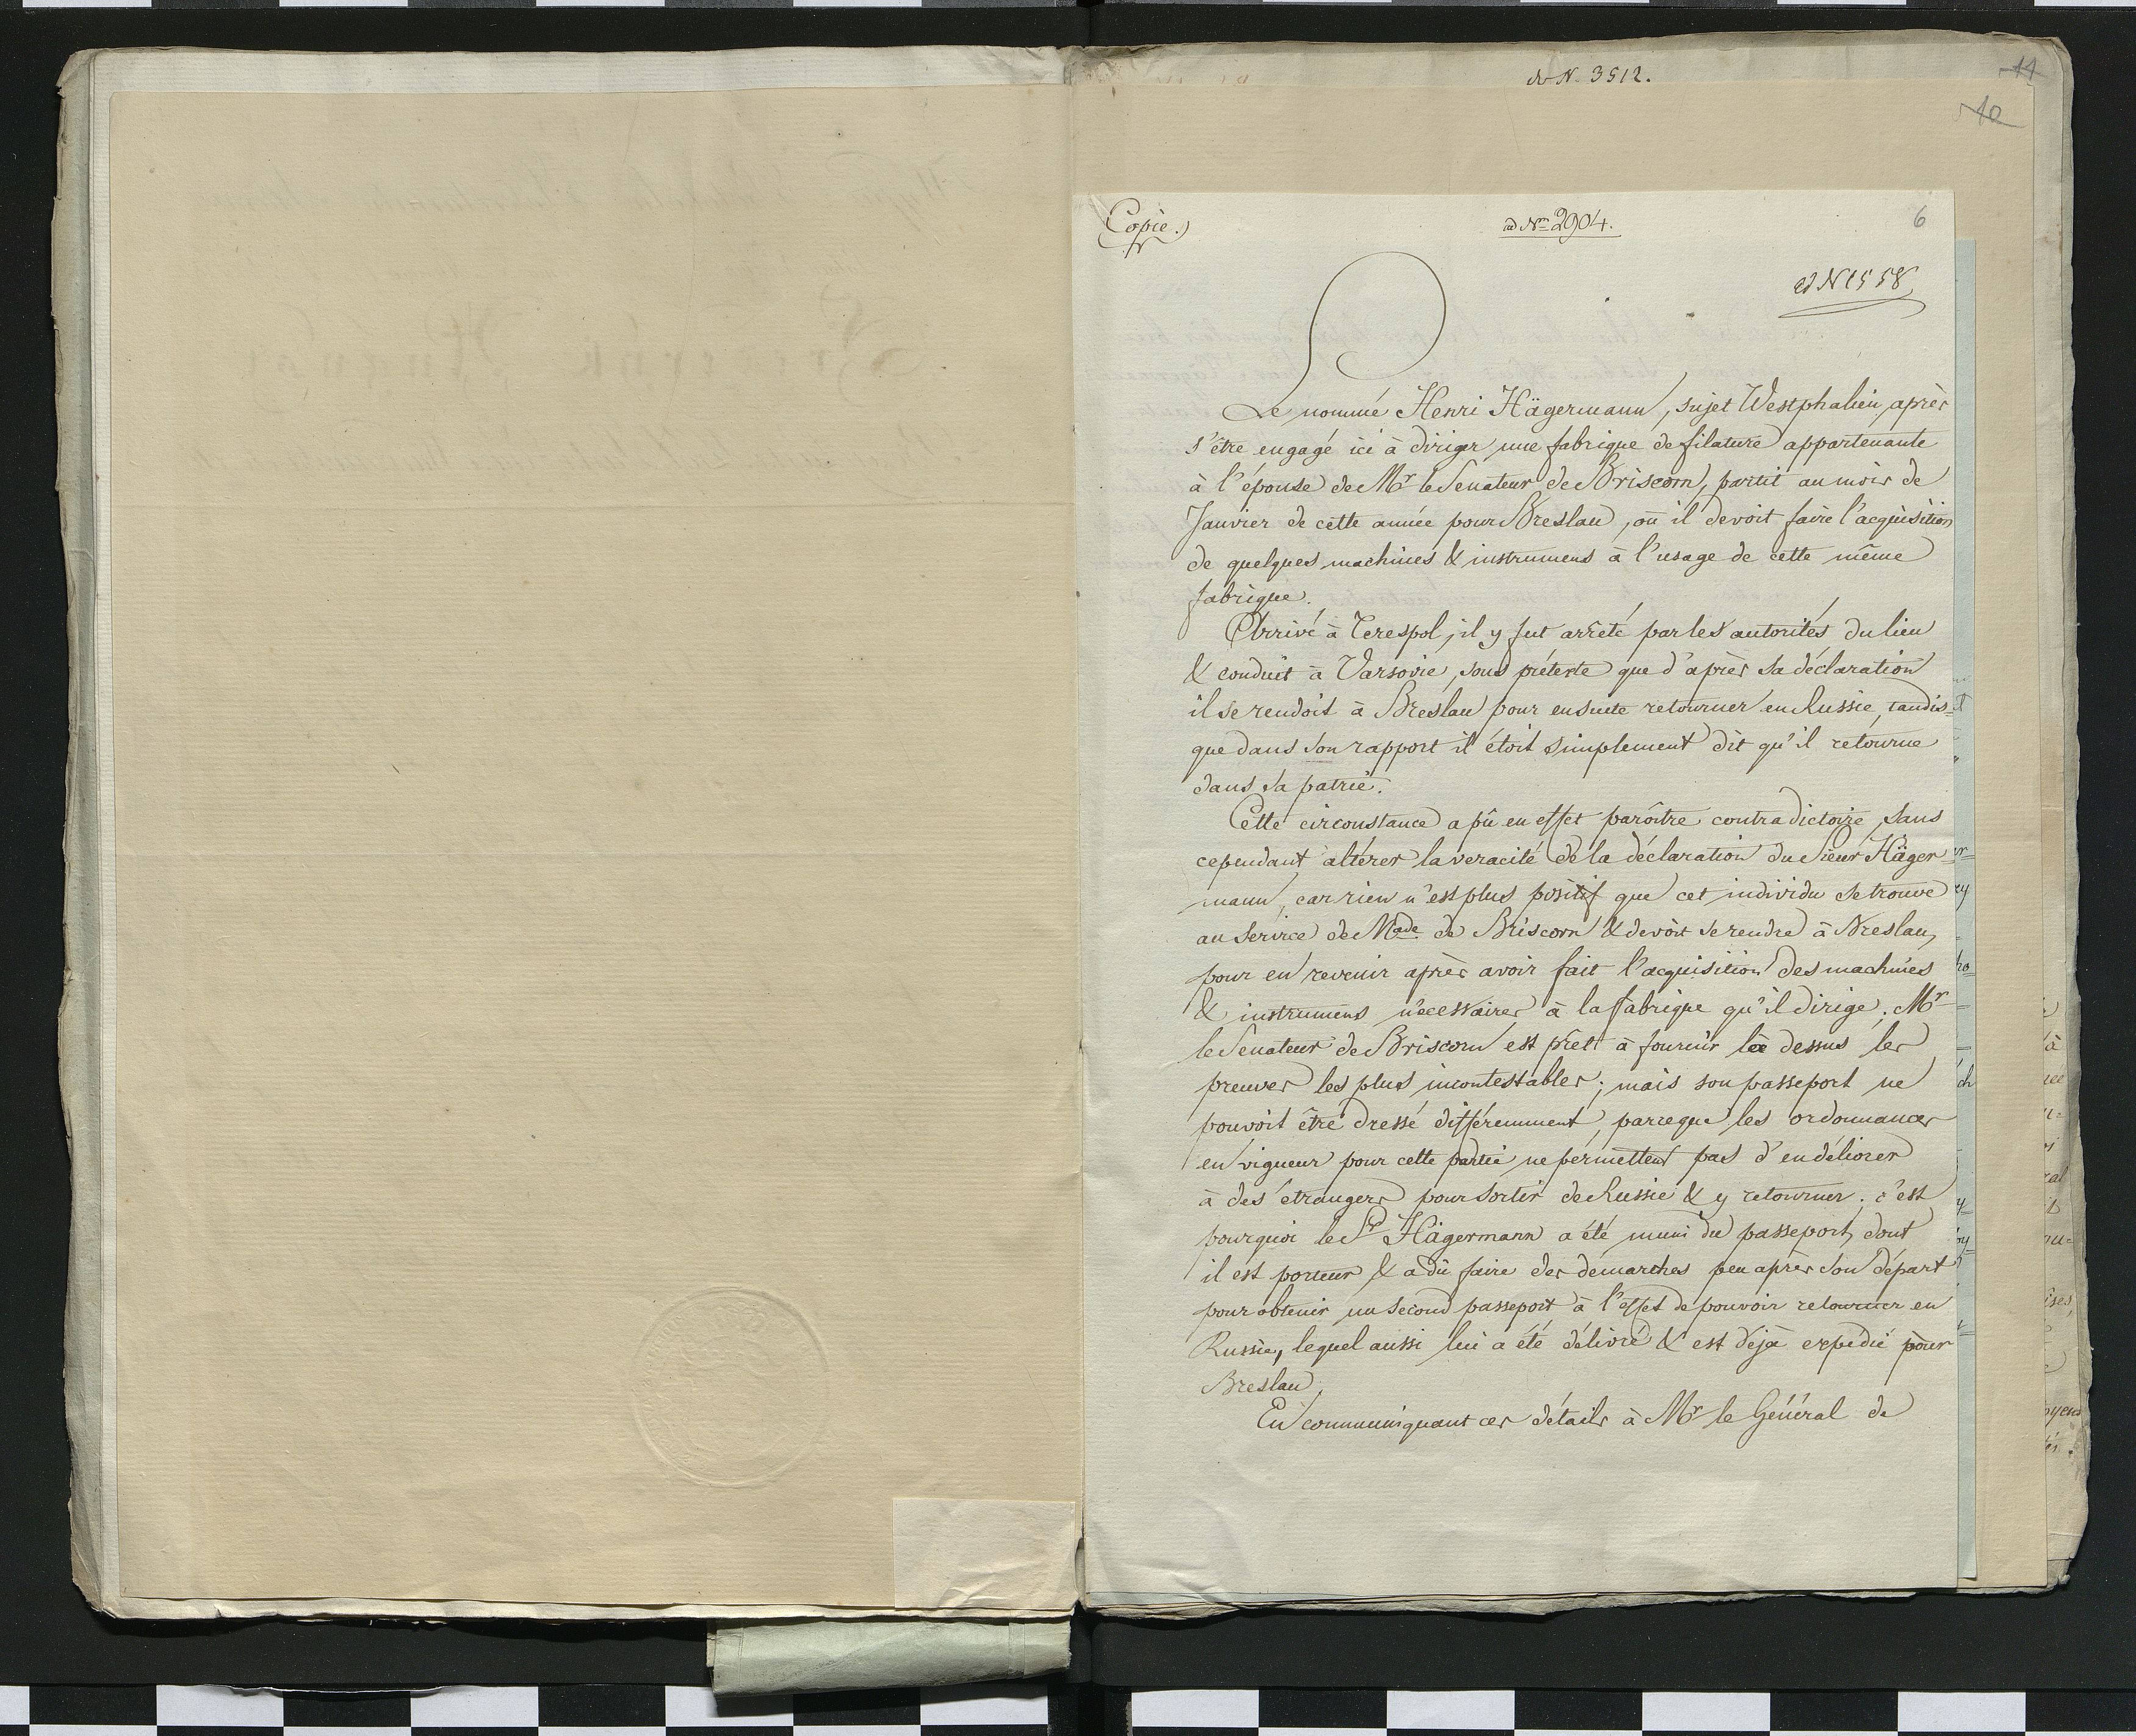 ad N. 3512.
11
10
Copie.
ad Nro 2904.
6
ad N 1558
Le nommé Henri Hägermann, sujet Westphalien, après
s'être engagé ici à diriger une fabrique de filature appartenante
à l'épouse de Mr le Senateur de Briscorn, partit au mois de
Janvier de cette année pour Breslau, où il devoit faire l'acquisition
de quelques machines & instrumens à l'usage de cette même
fabrique.
Arrivé à Terespol, il y fut arrêté par les autorités du lieu
& conduit à Varsovie, sous prétexte que d'après sa déclaration
il se rendoit à Breslau pour ensuite retourner en Russie, tandis=
que dans son rapport il étoit simplement dit qu'il retourne
dans sa patrie.
Cette circonstance a pû en effet parôitre contradictoire, sans
cependant altérer la veracité de la déclaration du Sieur Häger=
mann, car rien n'est plus positif que cet individu se trouve
au service de Made de Briscorn & devoit se rendre à Breslau,
pour en revenir après avoir fait l'acquisition des machines
& instrumens nécessaires à la fabrique qu'il dirige. Mr
le Senateur de Briscorn est prêt à fournir là dessus les
preuves les plus incontestables; mais son passeport ne
pouvoit être dressé différemment, parceque les ordonnances
en vigueur pour cette partie ne permettent pas d'en délivrer
à des étrangers pour sortir de Russie & y retourner. c'est
pourquoi le Sr Hägermann a été muni du passeport, dont
il est porteur & a dû faire des démarches peu après son départ
pour obtenir un second passeport à l'effet de pouvoir retourner en
Russie, lequel aussi lui a été délivré & est déjà expédié pour
Breslau.
En communiquant ces détails à Mr le Général de